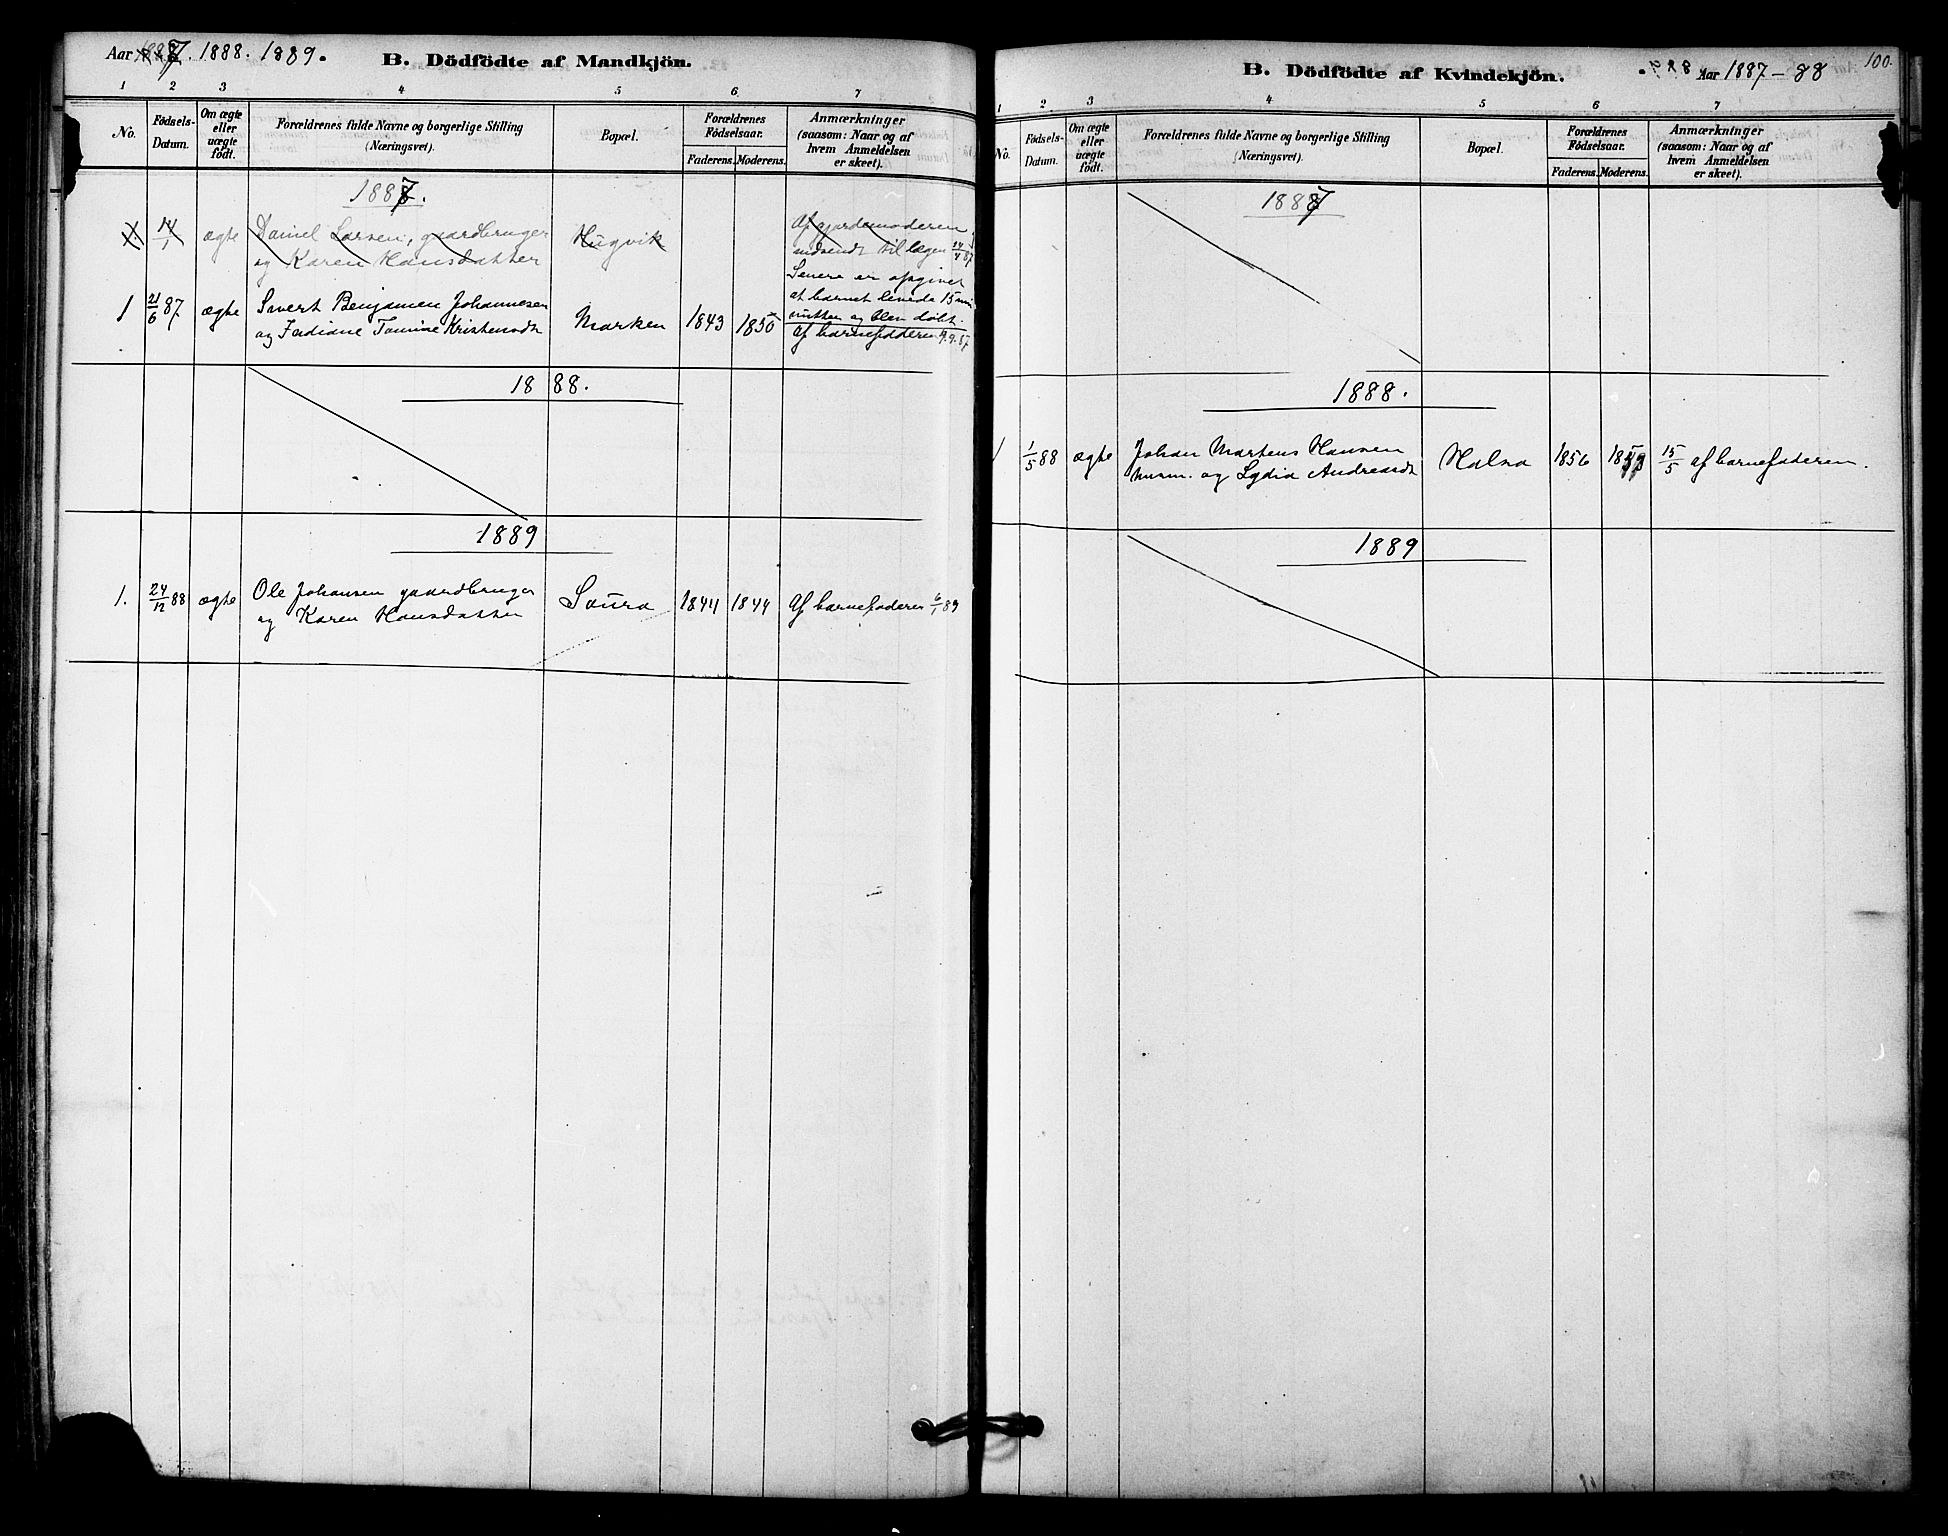 Aar 1887. 1888. 1889.
B. Dödfödte af Mandkjön.
1 2 3 4 5 6 7
No.
Födsels-
Datum.
Om ægte
eller
uægte
født.
Forældrenes fulde Navne og borgerlige Stilling
(Næringsvei).
Bopæl.
Forældrenes
Födselsaar.
Faderens. Moderens.
Anmærkninger
(saasom: Naar og af
hvem Anmeldelsen
er skeet).
1887.
1. 14/1 ægte Daniel Larsen, gaardbruger
og Karen Hansdatter
Hugvik
Af gjordemoderen
indsendt til lægen 14/4 87
Senere er opgivet
at barnet levede 15 mi
nutter og blev døbt.
1 21/6 87 ægte Sivert Benjamen Johannesen
og Fediane Tomine Kristensdt
Marken 1843 1850
Af barnefaderen 4.9.87
1888.
1889
1. 24/12 88 ægte Ole Johansen gaardbruger
og Karen Hansdatter
Saura 1844 1844 Af barnefaderen 6/1 89
B. Dödfödte af Kvindekjön.
Aar 1887-88
100.
1 2 3 4 5 6 7
No.
Födsels-
Datum.
Om ægte
eller
uægte
födt.
Forældrenes fulde Navne og borgerlige Stilling
(Næringsvei).
Bopæl.
Forældrenes
Födselsaar.
Faderens. Moderens.
Anmærkninger
(saasom: Naar og af
hvem Anmeldelsen
er skeet).
1887
1888.
1 1/5 88 ægte Johan Martens Hansen
husm. og Lydia Andreasdt
Halsa 1856 15/5 af barnefaderen.
1889